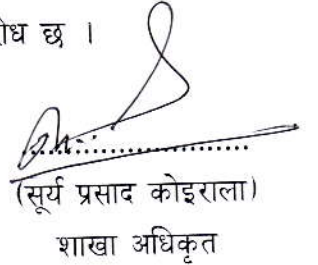 ोध छ ।
(सूर्य प्रसाद कोइराला)
शाखा अधिकृत